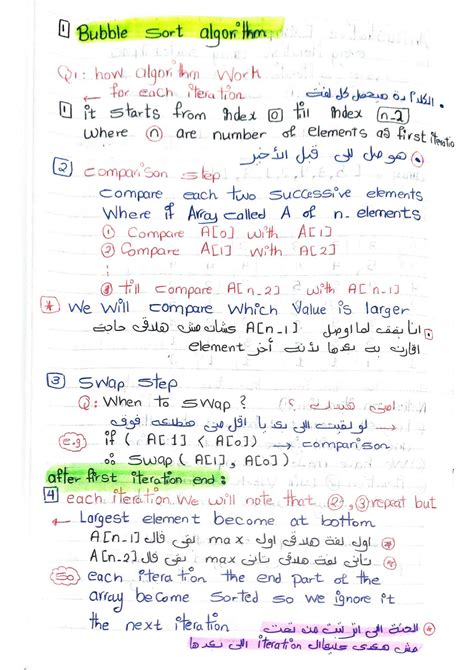 1 Bubble sort algorithm
Q1: how algorithm work
for each iteration
الكلام ده هيحصل كل لفة
1 it starts from index 0 till index n-2
where n are number of elements as first iteration
هوصل الى قبل الأخير
2 comparison step
compare each two successive elements
Where if Array called A of n-elements
1 Compare A[0] with A[1]
2 Compare A[1] with A[2]
till compare A[n-2] with A[n-1]
* We will compare which value is larger
انا بقف لما اوصل A[n-1] عشان مش هلاقي حاجة
اقارن بيه بعدها لأنه أخر element
3 Swap step
Q: When to swap ?
امتى
لو لقيت الى بعد اقل من
e.g if (A[1] < A[0]) → comparison
∴ Swap (A[1], A[0])
after first iteration end:
4 each iteration we will note that 2, 3 repeat but
Largest element become at bottom
اول لفة هلاقي اول max بقى فال A[n-1]
تاني لفة هلاقي تاني max بقى فال A[n-2]
So each iteration the end part of the
array become sorted so we ignore it
the next iteration
الحتة الى اترتبت من تحت
مش iteration الى بعدها